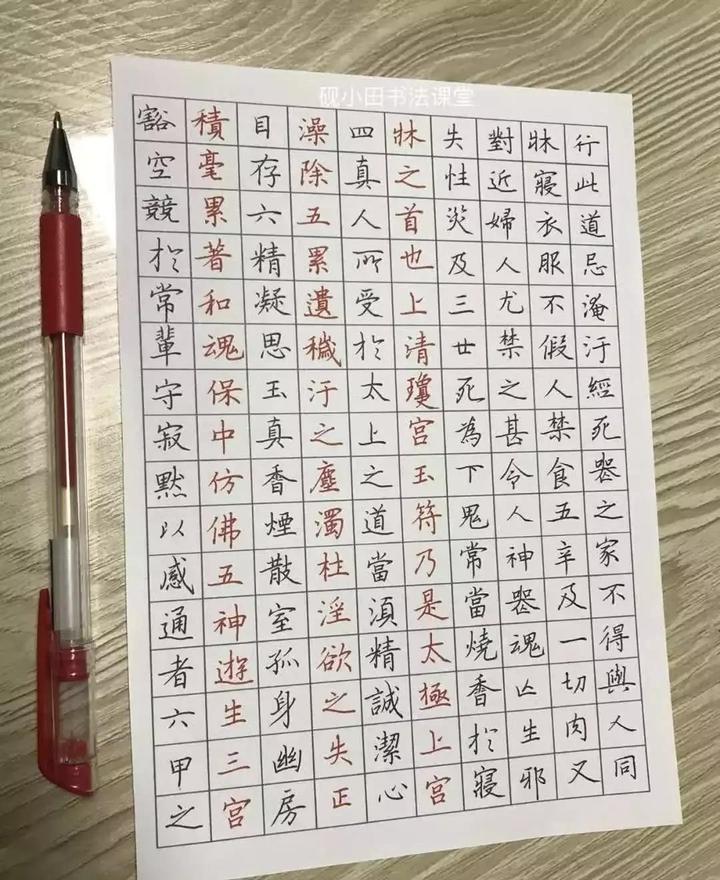 砚小田书法课堂
行此道忌淹汙經死喪之家不得與人同
牀寢衣服不假人禁食五辛及一切肉又
對近婦人尤禁之甚令人神喪魂亡生邪
失性災及三世死為下鬼常當燒香於寢
牀之首也上清瓊宮玉符乃是太極上宮
四真人所受於太上之道當須精誠潔心
澡除五累遺穢汙之塵濁杜淫欲之失正
目存六精凝思玉真香煙散室孤身幽房
積毫累著和魂保中仿佛五神遊生三宮
豁空競於常輩守寂默以感通者六甲之